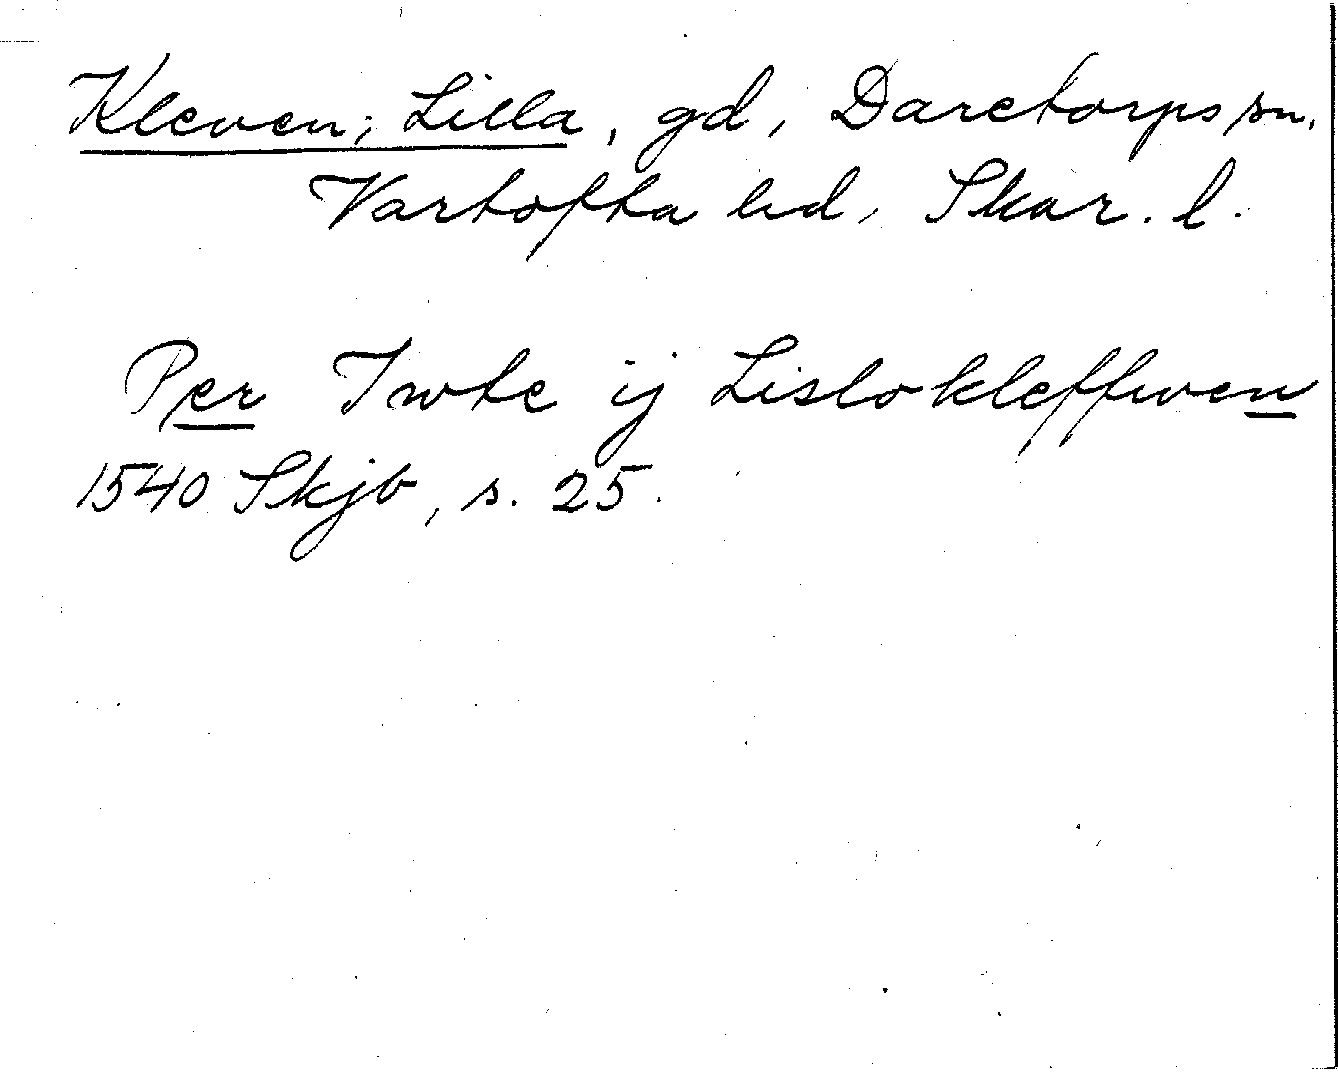 Kleven, Lilla, gd, Daretorps sn,
Vartofta hd, Skar. l.
Per Twte ij Lislokleffwen
1540 Skjb, s. 25.